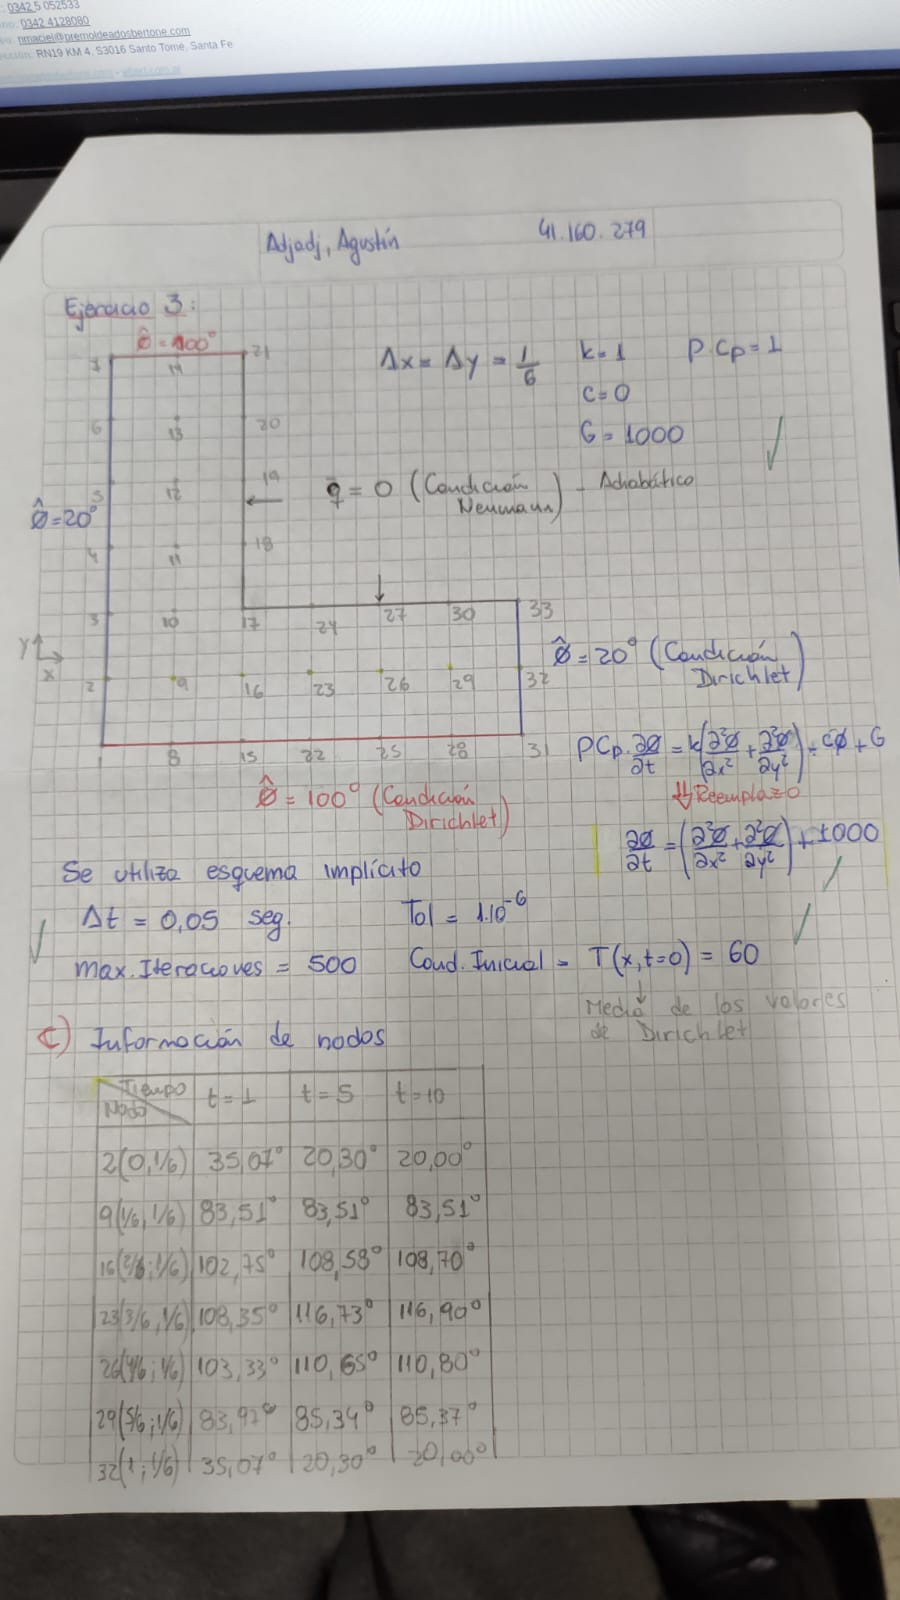 0342 5 052533
0342 4128080
nmaciel@premoldeadosbertone.com
RN19 KM 4, S3016 Santo Tomé, Santa Fe
Adjadj, Agustín 41.160.279
Ejercicio 3:
ϕ̂ = 100°
7 14 21
6 13 20
5 12 19
4 11 18
3 10 17 24 27 30 33
2 9 16 23 26 29 32
1 8 15 22 25 28 31
Y
X
ϕ̂ = 20°
Δx = Δy = 1/6 k = 1 ρ.Cp = 1
C = 0
G = 1000
q̄ = 0 (Condición Neumann) - Adiabático
ϕ̂ = 20° (Condición
Dirichlet)
ϕ̂ = 100° (Condición
Dirichlet)
ρCp.∂ϕ/∂t = k(∂²ϕ/∂x² + ∂²ϕ/∂y²) - cϕ + G
⇓ Reemplazo
∂ϕ/∂t = (∂²ϕ/∂x² + ∂²ϕ/∂y²) + 1000
Se utiliza esquema implícito
Δt = 0,05 seg. Tol = 1.10⁻⁶
max. Iteraciones = 500 Cond. Inicial = T(x,t=0) = 60
Media de los valores
de Dirichlet
C) Información de nodos
Tiempo
Nodo t = 1 t = 5 t = 10
2(0,1/6) 35,07° 20,30° 20,00°
9(1/6,1/6) 83,51° 83,51° 83,51°
16(2/6;1/6) 102,75° 108,58° 108,70°
23(3/6,1/6) 108,35° 116,73° 116,90°
26(4/6;1/6) 103,33° 110,65° 110,80°
29(5/6;1/6) 83,92° 85,34° 85,37°
32(1;1/6) 35,07° 20,30° 20,00°